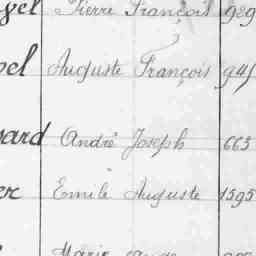 yel Pierre François 929
pel Auguste François 945
sard André Joseph 663
er Emile Auguste 1595
Marie